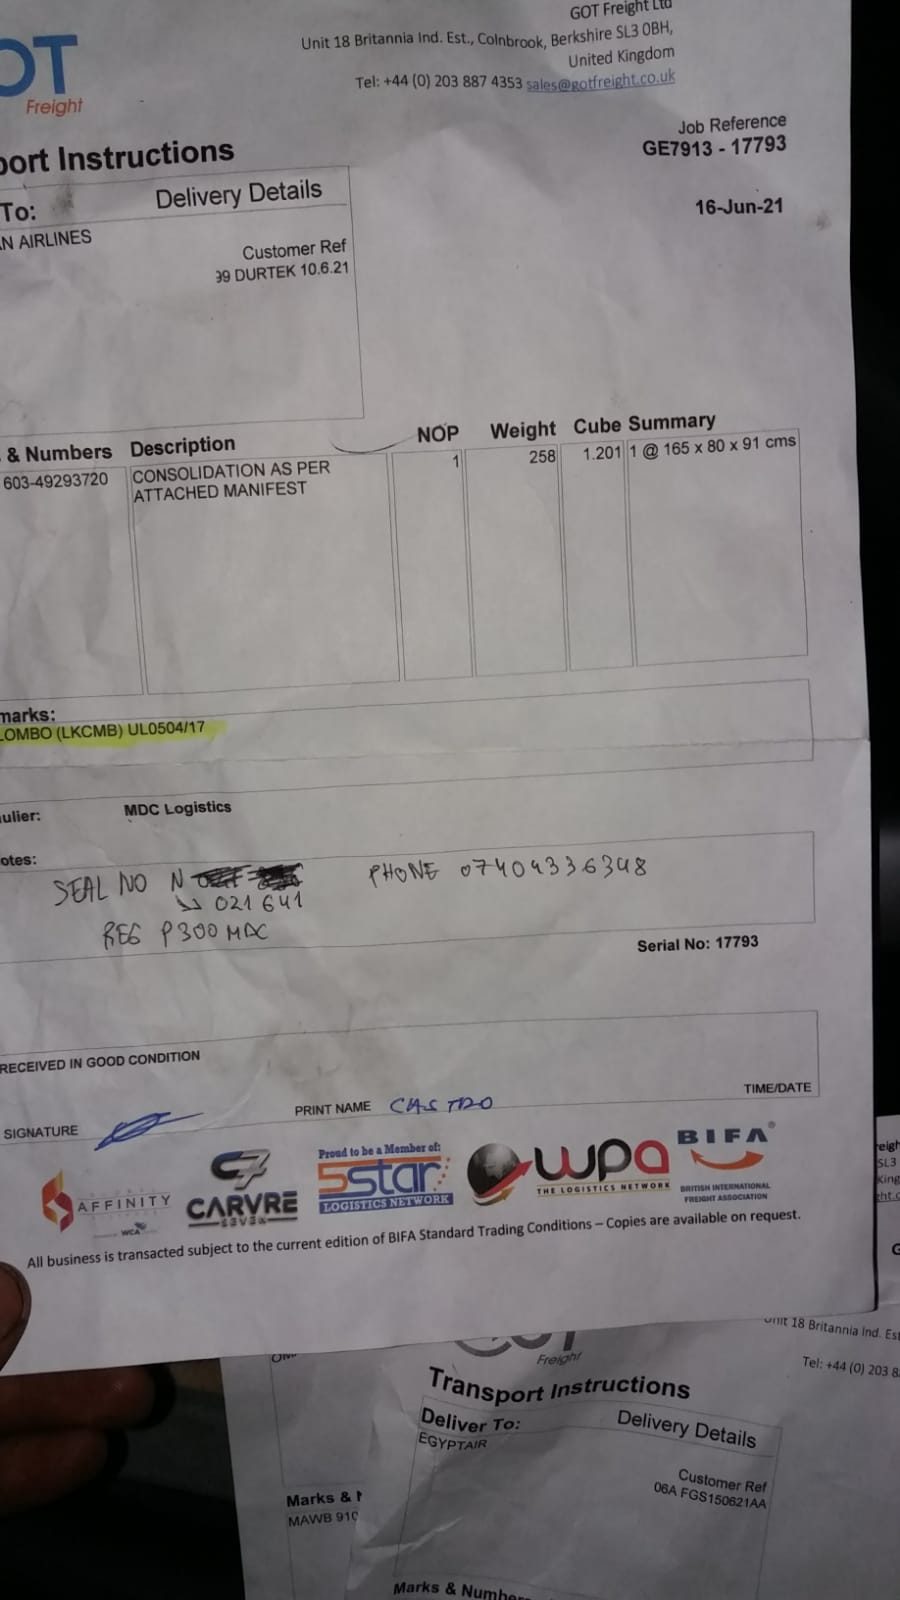 OT
Freight
GOT Freight Ltd
Unit 18 Britannia Ind. Est., Colnbrook, Berkshire SL3 0BH,
United Kingdom
Tel: +44 (0) 203 887 4353 sales@gotfreight.co.uk
port Instructions
Job Reference
GE7913 - 17793
To:
Delivery Details
16-Jun-21
N AIRLINES
Customer Ref
99 DURTEK 10.6.21
& Numbers Description NOP Weight Cube Summary
603-49293720 CONSOLIDATION AS PER 1 258 1.201 1 @ 165 x 80 x 91 cms
ATTACHED MANIFEST
marks:
LOMBO (LKCMB) UL0504/17
ulier: MDC Logistics
otes:
SEAL NO N PHONE 07404336348
021641
REG P300 MAC
Serial No: 17793
RECEIVED IN GOOD CONDITION
SIGNATURE PRINT NAME CASTRO TIME/DATE
AFFINITY
WCA
CARVRE
SEVEN
Proud to be a Member of:
5star
LOGISTICS NETWORK
wpa
THE LOGISTICS NETWORK
BIFA
BRITISH INTERNATIONAL
FREIGHT ASSOCIATION
All business is transacted subject to the current edition of BIFA Standard Trading Conditions – Copies are available on request.
reigh
SL3
King
G
Freight
Unit 18 Britannia Ind. Est
Tel: +44 (0) 203 8
Transport Instructions
Deliver To: Delivery Details
EGYPTAIR
Customer Ref
06A FGS150621AA
Marks &
MAWB 910
Marks & Numbe